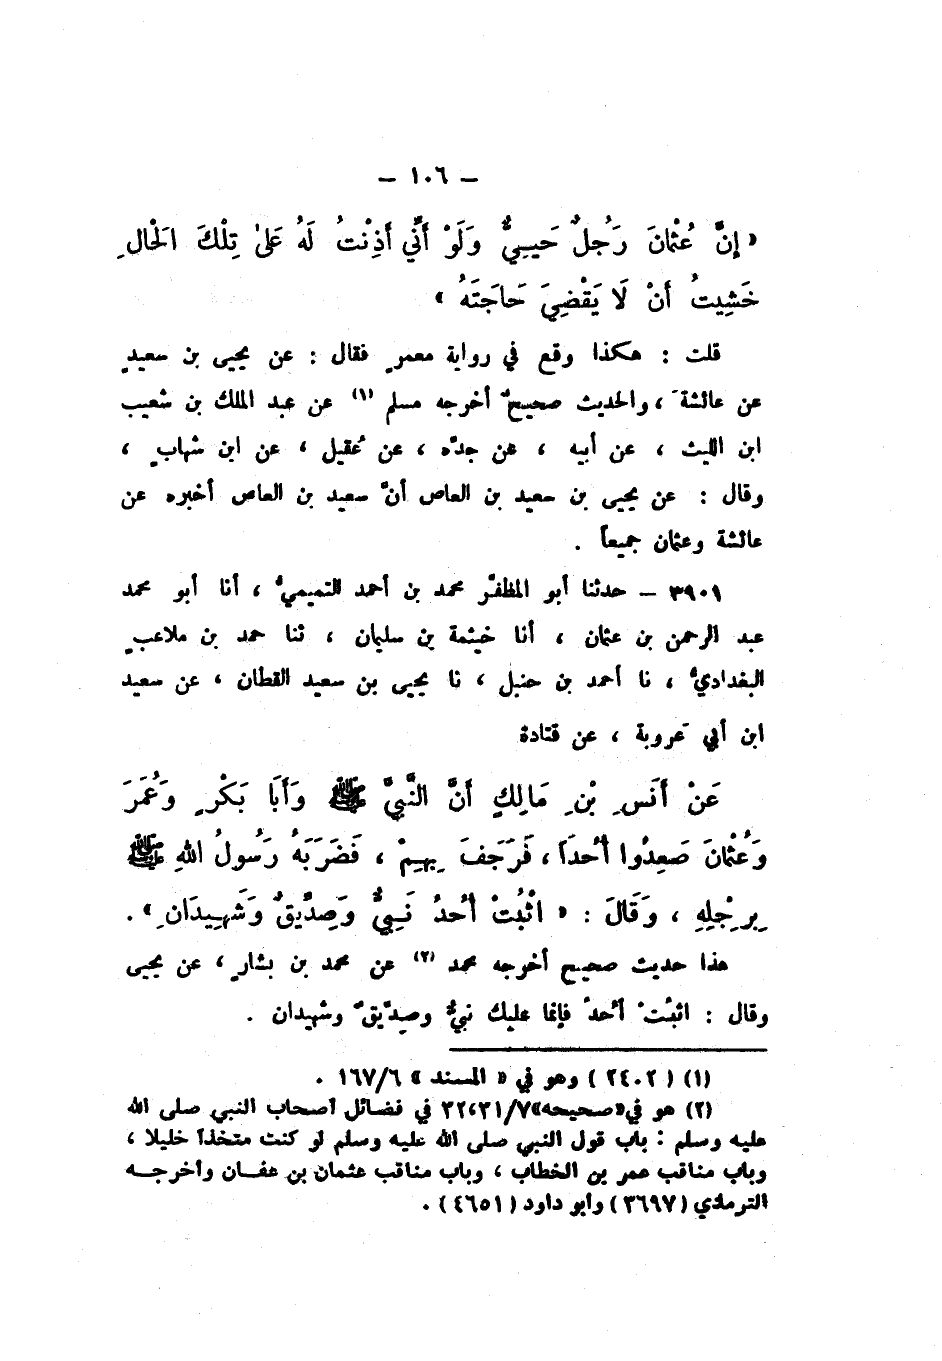 – ١٠٦ –
« إِنَّ عُثْمَانَ رَجُلٌ حَيِيٌّ وَلَوْ أَنِّي أَذِنْتُ لَهُ عَلَىٰ تِلْكَ الْحَالِ
خَشِيتُ أَنْ لَا يَقْضِيَ حَاجَتَهُ »
قلت : هكذا وقع في رواية معمرٍ فقال : عن يحيى بن سعيدٍ
عن عائشةَ ، والحديث صحيحٌ أخرجه مسلم (١) عن عبد الملك بن شعيب
ابن الليث ، عن أبيه ، عن جدّه ، عن عُقيل ، عن ابن شهابٍ ،
وقال : عن يحيى بن سعيد بن العاص أنَّ سعيد بن العاص أخبره عن
عائشة وعثمان جميعاً .
٣٩٠١ – حدثنا أبو المظفّر محمد بن أحمد التميميُّ ، أنا أبو محمد
عبد الرحمن بن عثمان ، أنا خيثمة بن سليمان ، ثنا حمد بن ملاعبٍ
البغداديُّ ، نا أحمد بن حنبل ، نا يحيى بن سعيد القطان ، عن سعيد
ابن أبي عَروبة ، عن قتادة
عَنْ أَنَسِ بْنِ مَالِكٍ أَنَّ النَّبِيَّ ﷺ وَأَبَا بَكْرٍ وَعُمَرَ
وَعُثْمَانَ صَعِدُوا أُحُدَاً ، فَرَجَفَ بِهِمْ ، فَضَرَبَهُ رَسُولُ اللهِ ﷺ
بِرِجْلِهِ ، وَقَالَ : « اثْبُتْ أُحُدُ نَبِيٌّ وَصِدِّيقٌ وَشَهِيدَانِ » .
هذا حديث صحيح أخرجه محمد (٢) عن محمد بن بشارٍ ، عن يحيى
وقال : اثبُتْ أُحدُ فإنما عليك نبيٌّ وصدِّيقٌ وشهيدان .
(١) ( ٢٤٠٢ ) وهو في « المسند » ١٦٧/٦ .
(٢) هو في «صحيحه» ٣٢،٣١/٧ في فضائل أصحاب النبي صلى الله
عليه وسلم : باب قول النبي صلى الله عليه وسلم لو كنت متخذاً خليلا ،
وباب مناقب عمر بن الخطاب ، وباب مناقب عثمان بن عفــان وأخرجــه
الترمذي ( ٣٦٩٧ ) وأبو داود ( ٤٦٥١ ) .